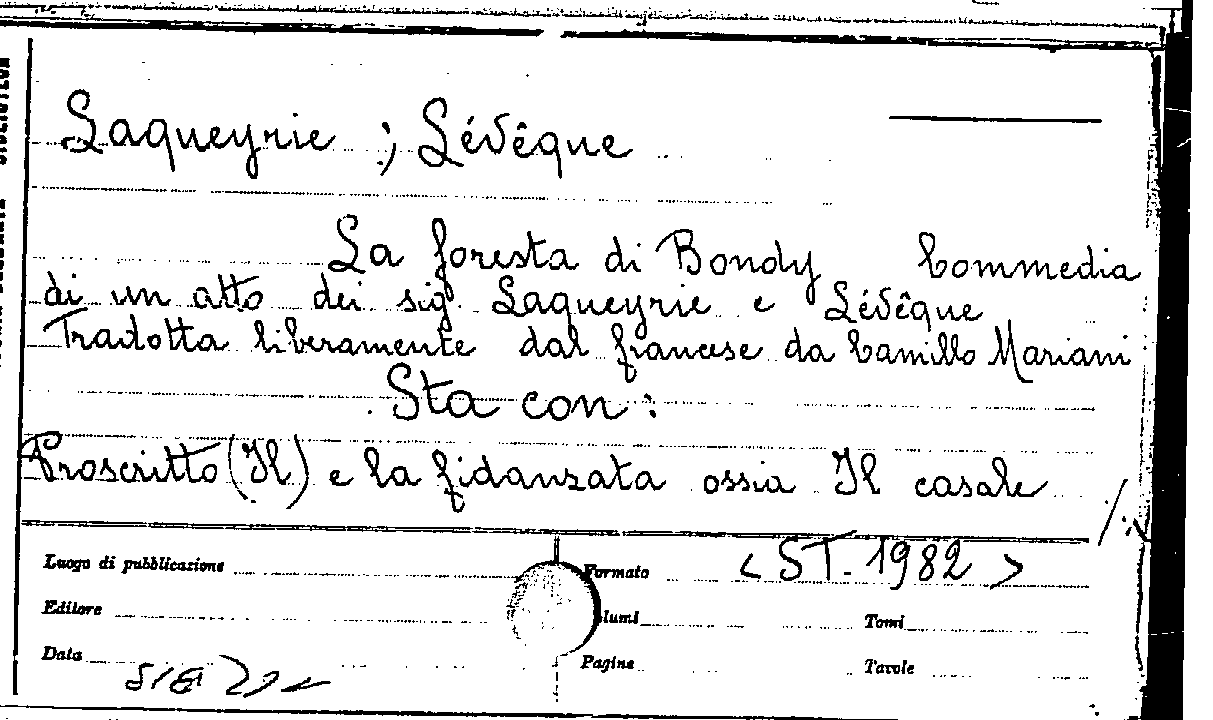 Laqueyrie ; Lévêque
La foresta di Bondy Commedia
di un atto dei sig. Laqueyrie e Lévêque
Tradotta liberamente dal francese da Camillo Mariani
Sta con:
Proscritto (Il) e la fidanzata ossia Il casale ./.
Luogo di pubblicazione
Formato <ST. 1982>
Editore
lumi
Tomi
Data
Pagine
Tavole